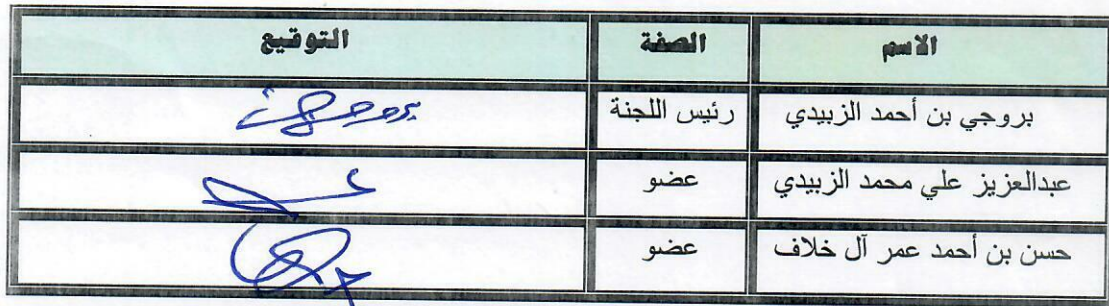 الاسم الصفة التوقيع
بروجي بن أحمد الزبيدي رئيس اللجنة
عبدالعزيز علي محمد الزبيدي عضو
حسن بن أحمد عمر آل خلاف عضو